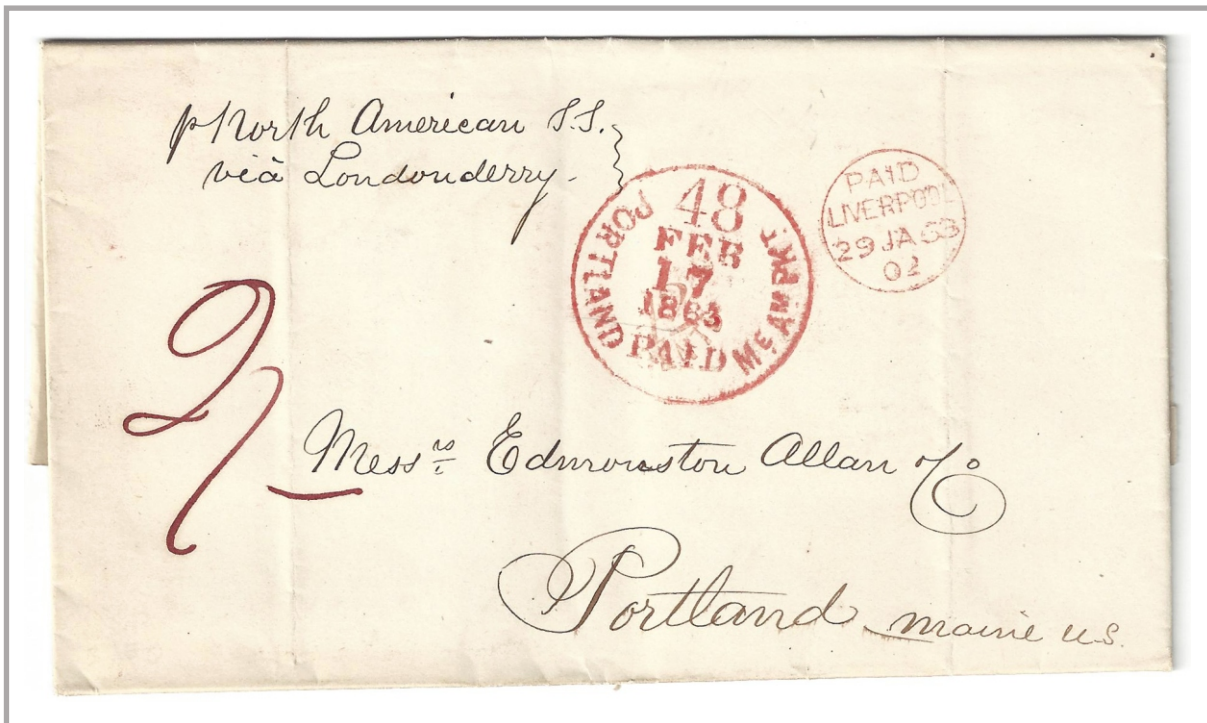 p North American S.S.
via Londonderry.
PORTLAND Me. AM. PKT
48
FEB
17
1863
PAID
PAID
LIVERPOOL
29 JA 63
02
2/-
Messrs Edmonston Allan & Co
Portland Maine US.